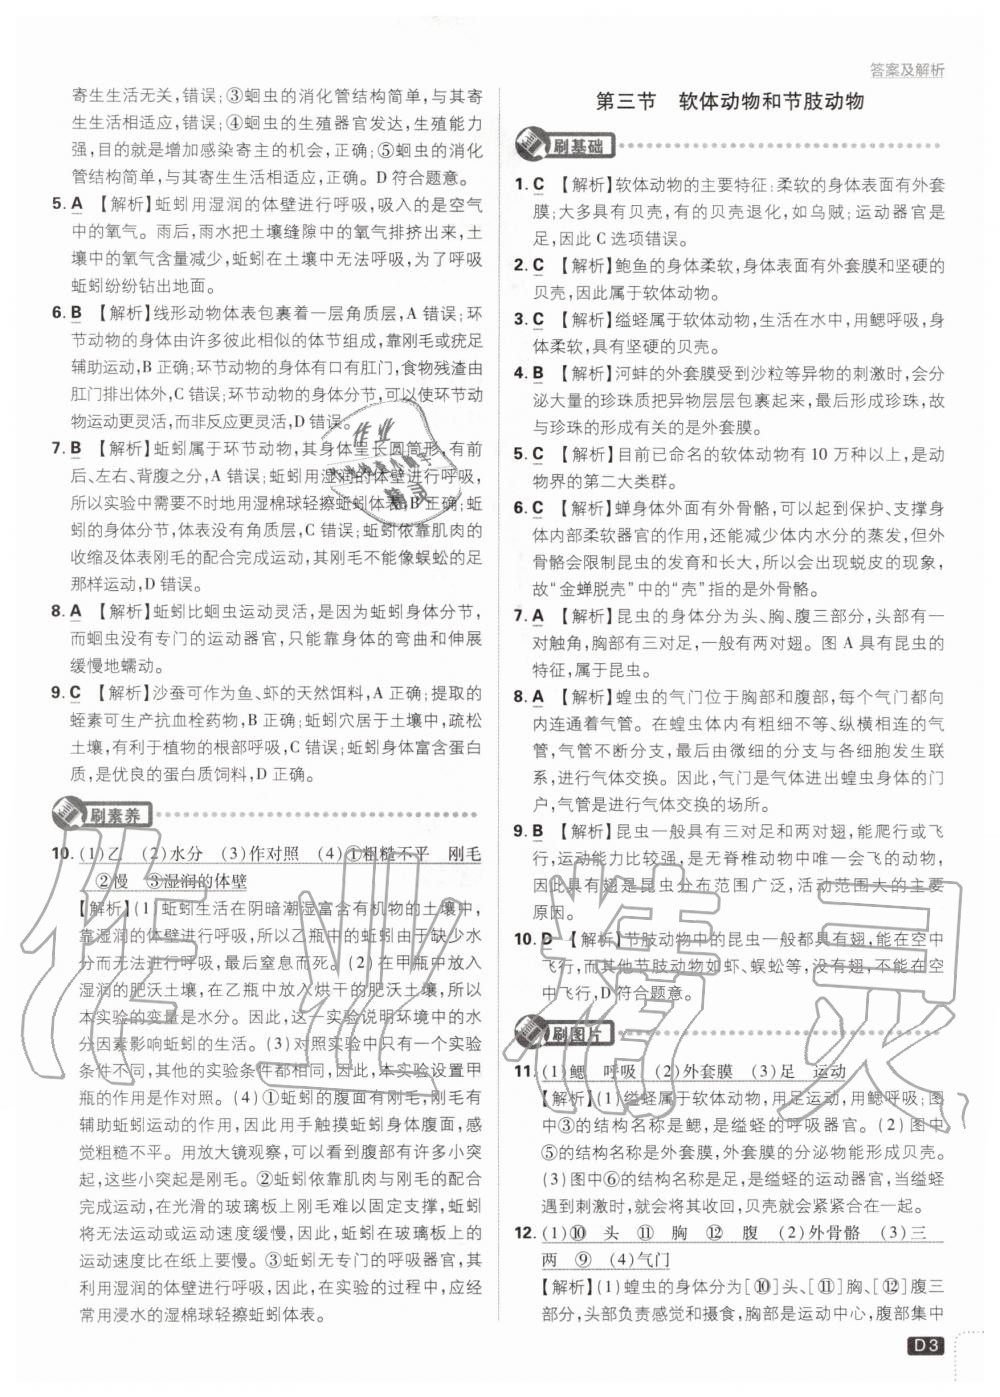 答案及解析
寄生生活无关,错误;③蛔虫的消化管结构简单,与其寄
生生活相适应,错误;④蛔虫的生殖器官发达,生殖能力
强,目的就是增加感染寄主的机会,正确;⑤蛔虫的消化
管结构简单,与其寄生生活相适应,正确。D 符合题意。
5. A 【解析】蚯蚓用湿润的体壁进行呼吸,吸入的是空气
中的氧气。雨后,雨水把土壤缝隙中的氧气排挤出来,土
壤中的氧气含量减少,蚯蚓在土壤中无法呼吸,为了呼吸
蚯蚓纷纷钻出地面。
6. B 【解析】线形动物体表包裹着一层角质层,A 错误;环
节动物的身体由许多彼此相似的体节组成,靠刚毛或疣足
辅助运动,B 正确;环节动物的身体有口有肛门,食物残渣由
肛门排出体外,C 错误;环节动物的身体分节,可以使环节动
物运动更灵活,而非反应更灵活,D 错误。
7. B 【解析】蚯蚓属于环节动物,其身体呈长圆筒形,有前
后、左右、背腹之分,A 错误;蚯蚓用湿润的体壁进行呼吸,
所以实验中需要不时地用湿棉球轻擦蚯蚓体表,B 正确;蚯
蚓的身体分节,体表没有角质层,C 错误;蚯蚓依靠肌肉的
收缩及体表刚毛的配合完成运动,其刚毛不能像蜈蚣的足
那样运动,D 错误。
8. A 【解析】蚯蚓比蛔虫运动灵活,是因为蚯蚓身体分节,
而蛔虫没有专门的运动器官,只能靠身体的弯曲和伸展
缓慢地蠕动。
9. C 【解析】沙蚕可作为鱼、虾的天然饵料,A 正确;提取的
蛭素可生产抗血栓药物,B 正确;蚯蚓穴居于土壤中,疏松
土壤,有利于植物的根部呼吸,C 错误;蚯蚓身体富含蛋白
质,是优良的蛋白质饲料,D 正确。
刷素养
10. (1)乙 (2)水分 (3)作对照 (4)①粗糙不平 刚毛
②慢 ③湿润的体壁
【解析】(1)蚯蚓生活在阴暗潮湿富含有机物的土壤中,
靠湿润的体壁进行呼吸,所以乙瓶中的蚯蚓由于缺少水
分而无法进行呼吸,最后窒息而死。(2)在甲瓶中放入
湿润的肥沃土壤,在乙瓶中放入烘干的肥沃土壤,所以
本实验的变量是水分。因此,这一实验说明环境中的水
分因素影响蚯蚓的生活。(3)对照实验中只有一个实验
条件不同,其他的实验条件都相同,因此,本实验设置甲
瓶的作用是作对照。(4)①蚯蚓的腹面有刚毛,刚毛有
辅助蚯蚓运动的作用。用手触摸蚯蚓身体腹面,感
觉粗糙不平。用放大镜观察,可以看到腹部有许多小突
起,这些小突起是刚毛。②蚯蚓依靠肌肉与刚毛的配合
完成运动,在光滑的玻璃板上刚毛难以固定支撑,蚯蚓
将无法运动或运动速度缓慢,因此,蚯蚓在玻璃板上的
运动速度比在纸上要慢。③蚯蚓无专门的呼吸器官,其
利用湿润的体壁进行呼吸,因此,在实验的过程中,应经
常用浸水的湿棉球轻擦蚯蚓体表。
第三节 软体动物和节肢动物
刷基础
1. C 【解析】软体动物的主要特征:柔软的身体表面有外套
膜;大多具有贝壳,有的贝壳退化,如乌贼;运动器官是
足,因此 C 选项错误。
2. C 【解析】鲍鱼的身体柔软,身体表面有外套膜和坚硬的
贝壳,因此属于软体动物。
3. C 【解析】缢蛏属于软体动物,生活在水中,用鳃呼吸,身
体柔软,具有坚硬的贝壳。
4. B 【解析】河蚌的外套膜受到沙粒等异物的刺激时,会分
泌大量的珍珠质把异物层层包裹起来,最后形成珍珠,故
与珍珠的形成有关的是外套膜。
5. C 【解析】目前已命名的软体动物有 10 万种以上,是动
物界的第二大类群。
6. C 【解析】蝉身体外面有外骨骼,可以起到保护、支撑身
体内部柔软器官的作用,还能减少体内水分的蒸发,但外
骨骼会限制昆虫的发育和长大,所以会出现蜕皮的现象,
故“金蝉脱壳”中的“壳”指的是外骨骼。
7. A 【解析】昆虫的身体分为头、胸、腹三部分,头部有一
对触角,胸部有三对足,一般有两对翅。图 A 具有昆虫的
特征,属于昆虫。
8. A 【解析】蝗虫的气门位于胸部和腹部,每个气门都向
内连通着气管。在蝗虫体内有粗细不等、纵横相连的气
管,气管不断分支,最后由微细的分支与各细胞发生联
系,进行气体交换。因此,气门是气体进出蝗虫身体的门
户,气管是进行气体交换的场所。
9. B 【解析】昆虫一般具有三对足和两对翅,能爬行或飞
行,运动能力比较强,是无脊椎动物中唯一会飞的动物,
因此具有翅是昆虫分布范围广泛,活动范围大的主要
原因。
10. D 【解析】节肢动物中的昆虫一般都具有翅,能在空中
飞行,而其他节肢动物如虾、蜈蚣等,没有翅,不能在空
中飞行,D 符合题意。
刷图片
11. (1)鳃 呼吸 (2)外套膜 (3)足 运动
【解析】(1)缢蛏属于软体动物,用足运动,用鳃呼吸;图
中③的结构名称是鳃,是缢蛏的呼吸器官。(2)图中
⑤的结构名称是外套膜,外套膜的分泌物能形成贝壳。
(3)图中⑥的结构名称是足,是缢蛏的运动器官,当缢蛏
遇到刺激时,就会将其收回,贝壳就会紧紧合在一起。
12. (1)⑩ 头 ⑪ 胸 ⑫ 腹 (2)外骨骼 (3)三
两 ⑨ (4)气门
【解析】(1)蝗虫的身体分为[⑩]头、[⑪]胸、[⑫]腹三
部分,头部负责感觉和摄食,胸部是运动中心,腹部集中
D3
作业精灵